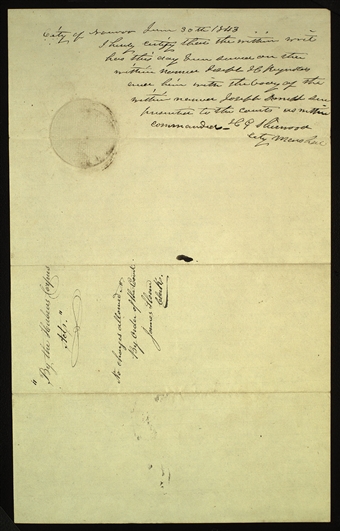 City of Nauvoo June 30th 1843
I herby certify that the within writ
has this day been served on the
within named Joseph H Reynolds
and him with the body of the
within named Joseph Smith
presented to the court as within
commanded — H G Sherwood
City Marshal
"By the Habeas Corpus
Act."
No charges allowed
By order of the Court.
James Sloan
Clerk.